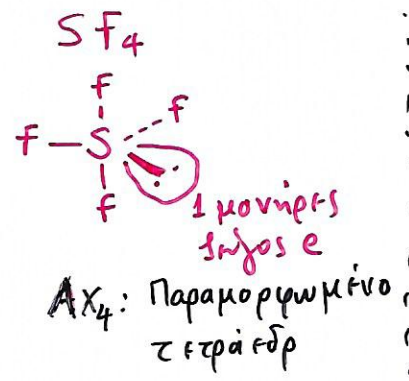 SF4
f
f
F — S
f
1 μονήρες
ζεύγος e
AX4: Παραμορφωμένο
τετράεδρ